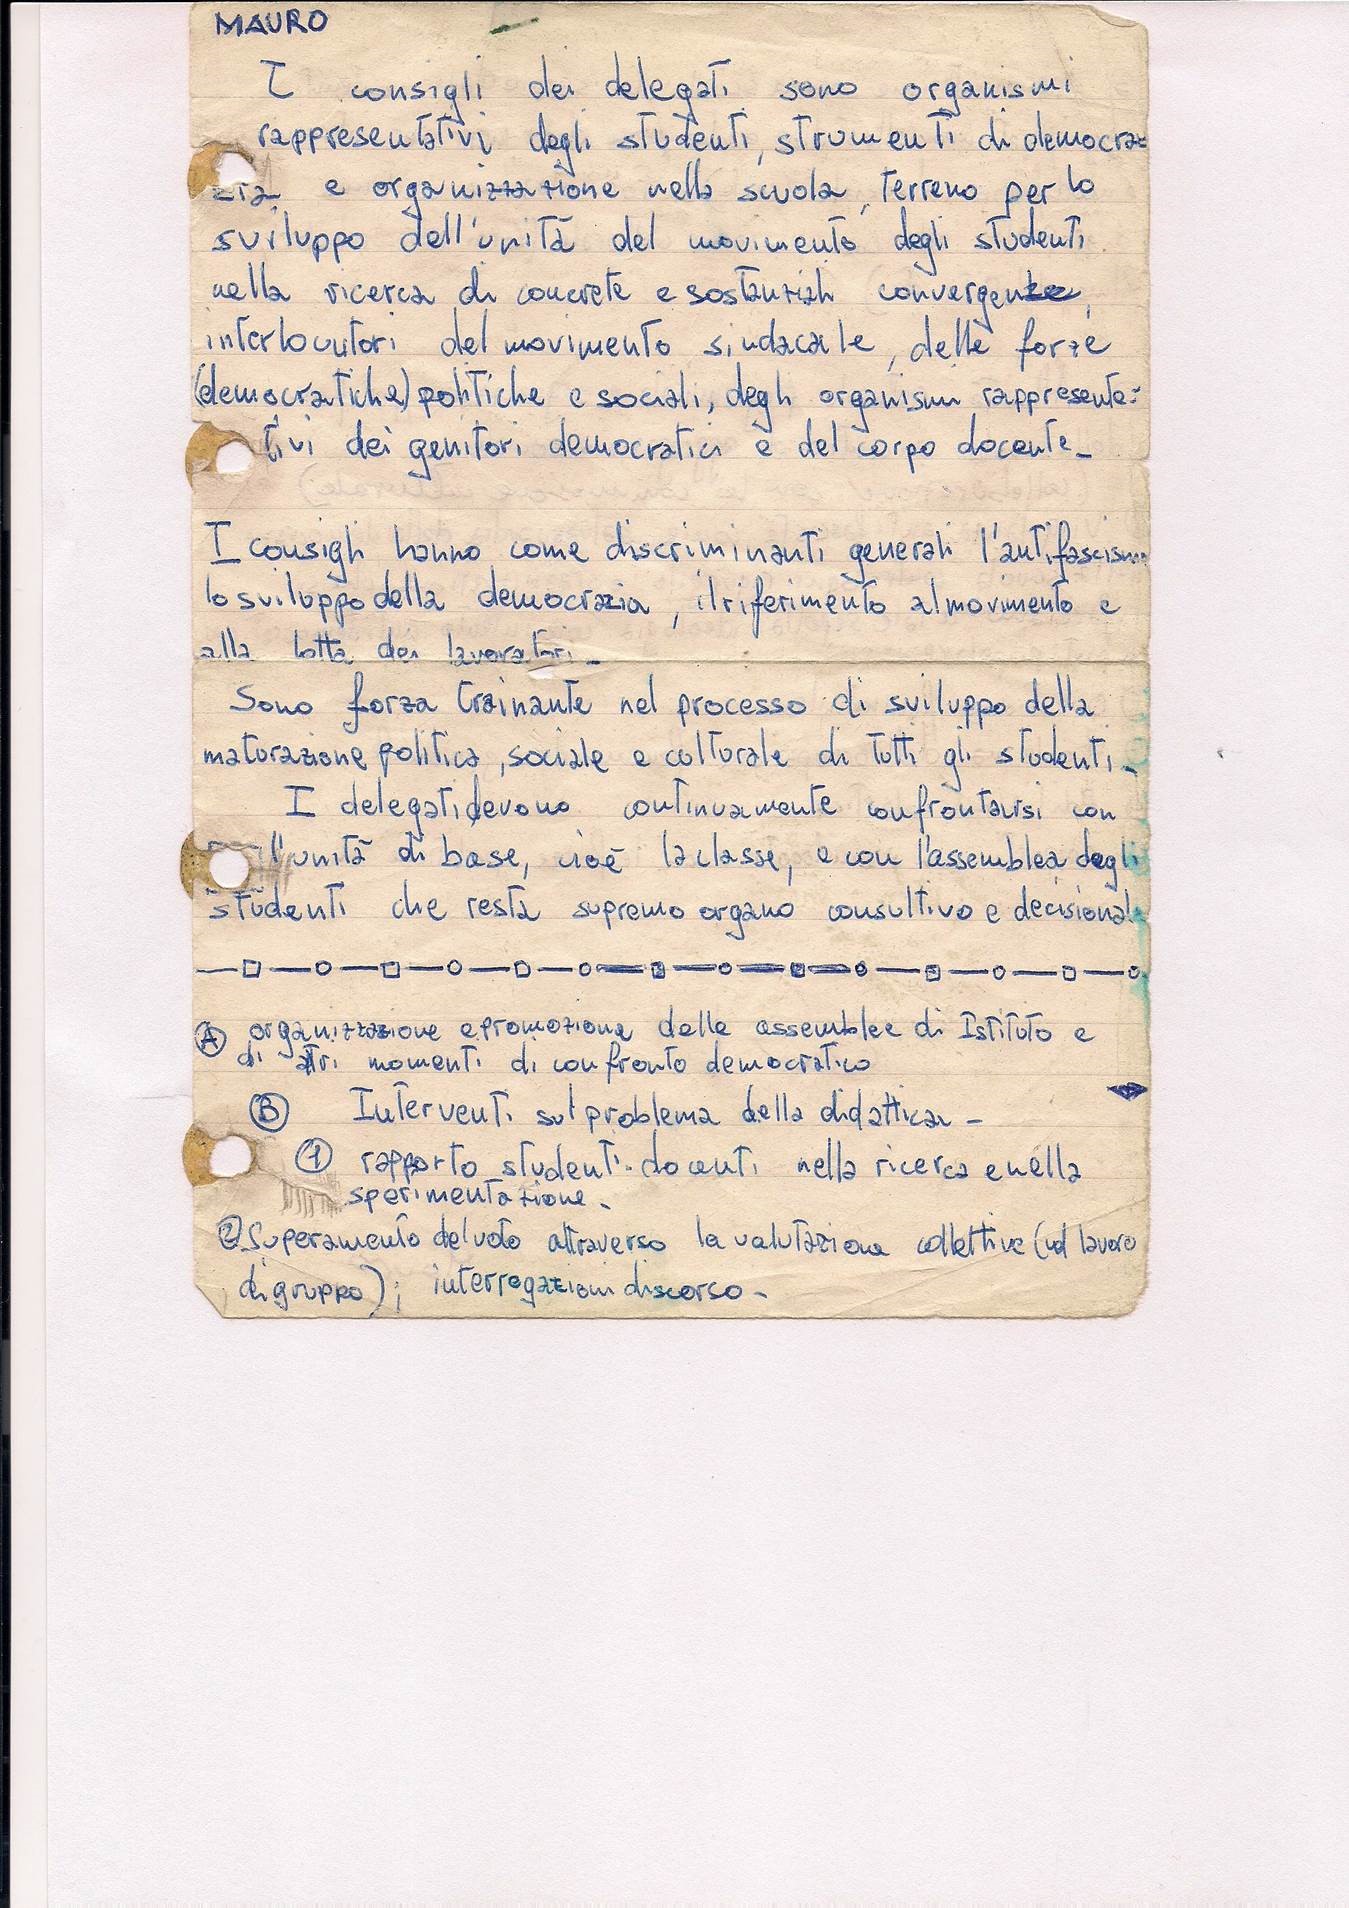 MAURO
I consigli dei delegati sono organismi
rappresentativi degli studenti, strumenti di democra=
zia e organizzazione nella scuola, terreno per lo
sviluppo dell'unità del movimento degli studenti
nella ricerca di concrete e sostanziali convergenze,
interlocutori del movimento sindacale, delle forze
(democratiche) politiche e sociali, degli organismi rappresenta=
tivi dei genitori democratici e del corpo docente_
I consigli hanno come discriminanti generali l'antifascismo
lo sviluppo della democrazia, il riferimento al movimento e
alla lotta dei lavoratori_
Sono forza trainante nel processo di sviluppo della
maturazione politica, sociale e culturale di tutti gli studenti_
I delegati devono continuamente confrontarsi con
l'unità di base, cioè la classe, e con l'assemblea degli
studenti che resta supremo organo consultivo e decisionale
A organizzazione e promozione delle assemblee di Istituto e
di altri momenti di confronto democratico
B Interventi sul problema della didattica_
1 rapporto studenti-docenti nella ricerca e nella
sperimentazione_
2 Superamento del voto attraverso la valutazione collettiva (nel lavoro
di gruppo); interrogazioni discorso_